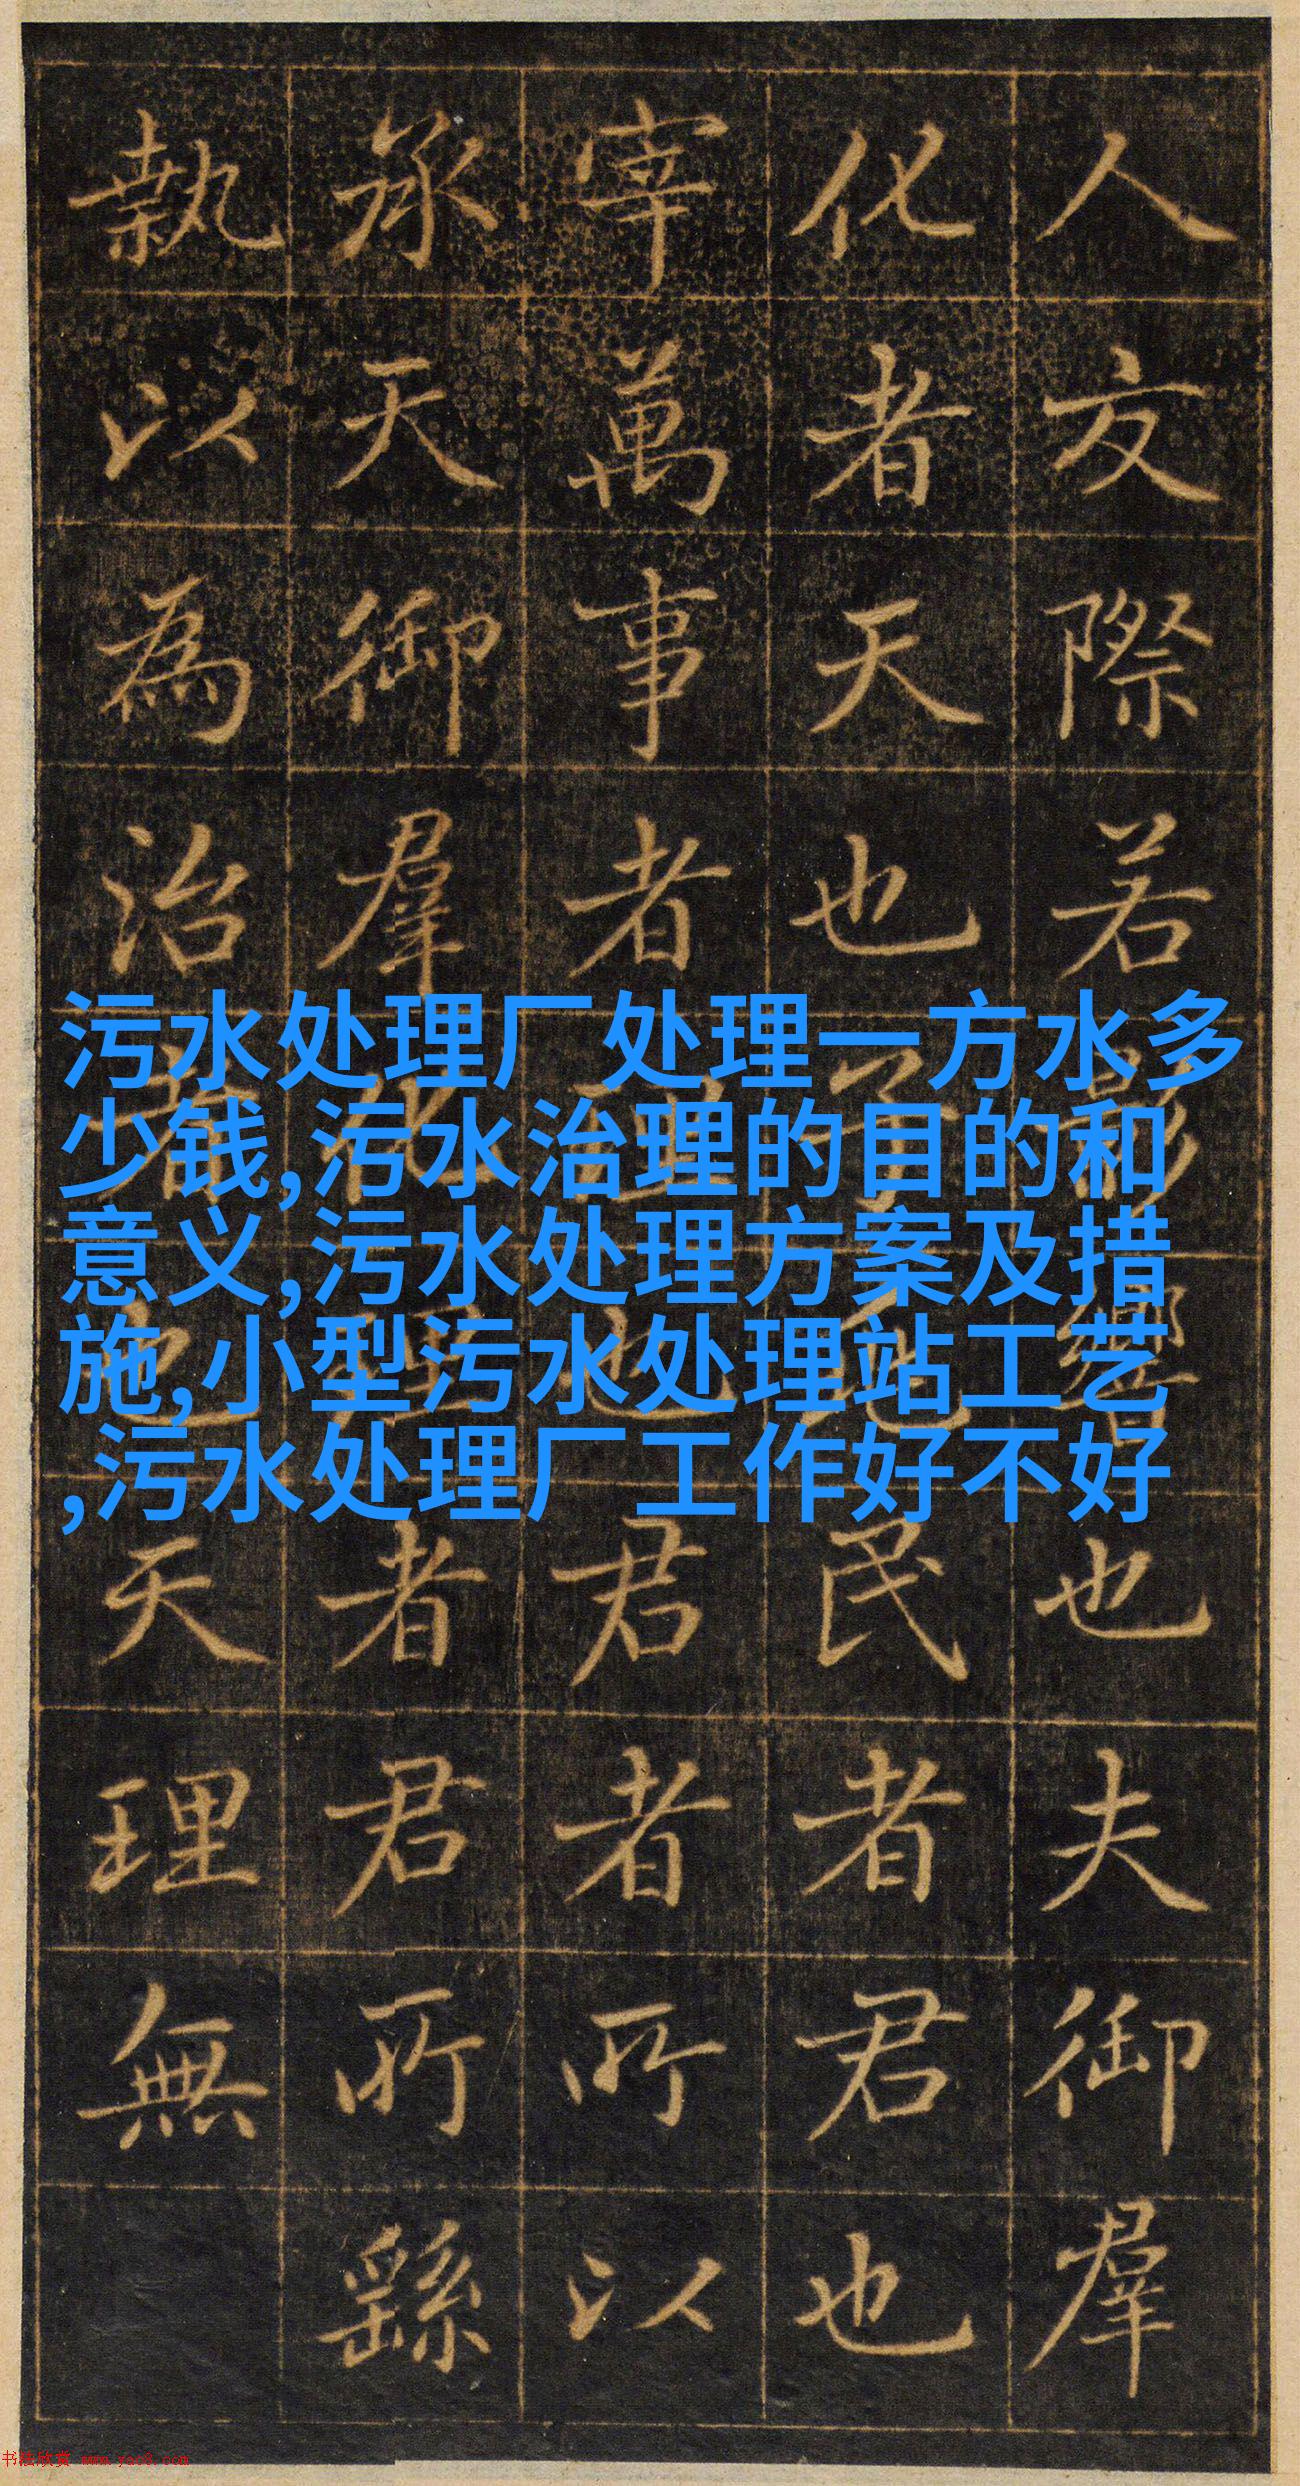 人交際若影響也夫御羣
化者天也子兆民者君也
宰萬事者理也君者所以
承天御羣化經者君所繇
執以為治者也天理無
污水处理厂处理一方水多
少钱,污水治理的目的和
意义,污水处理方案及措
施,小型污水处理站工艺
,污水处理厂工作好不好
书法欣赏 www.yac8.com